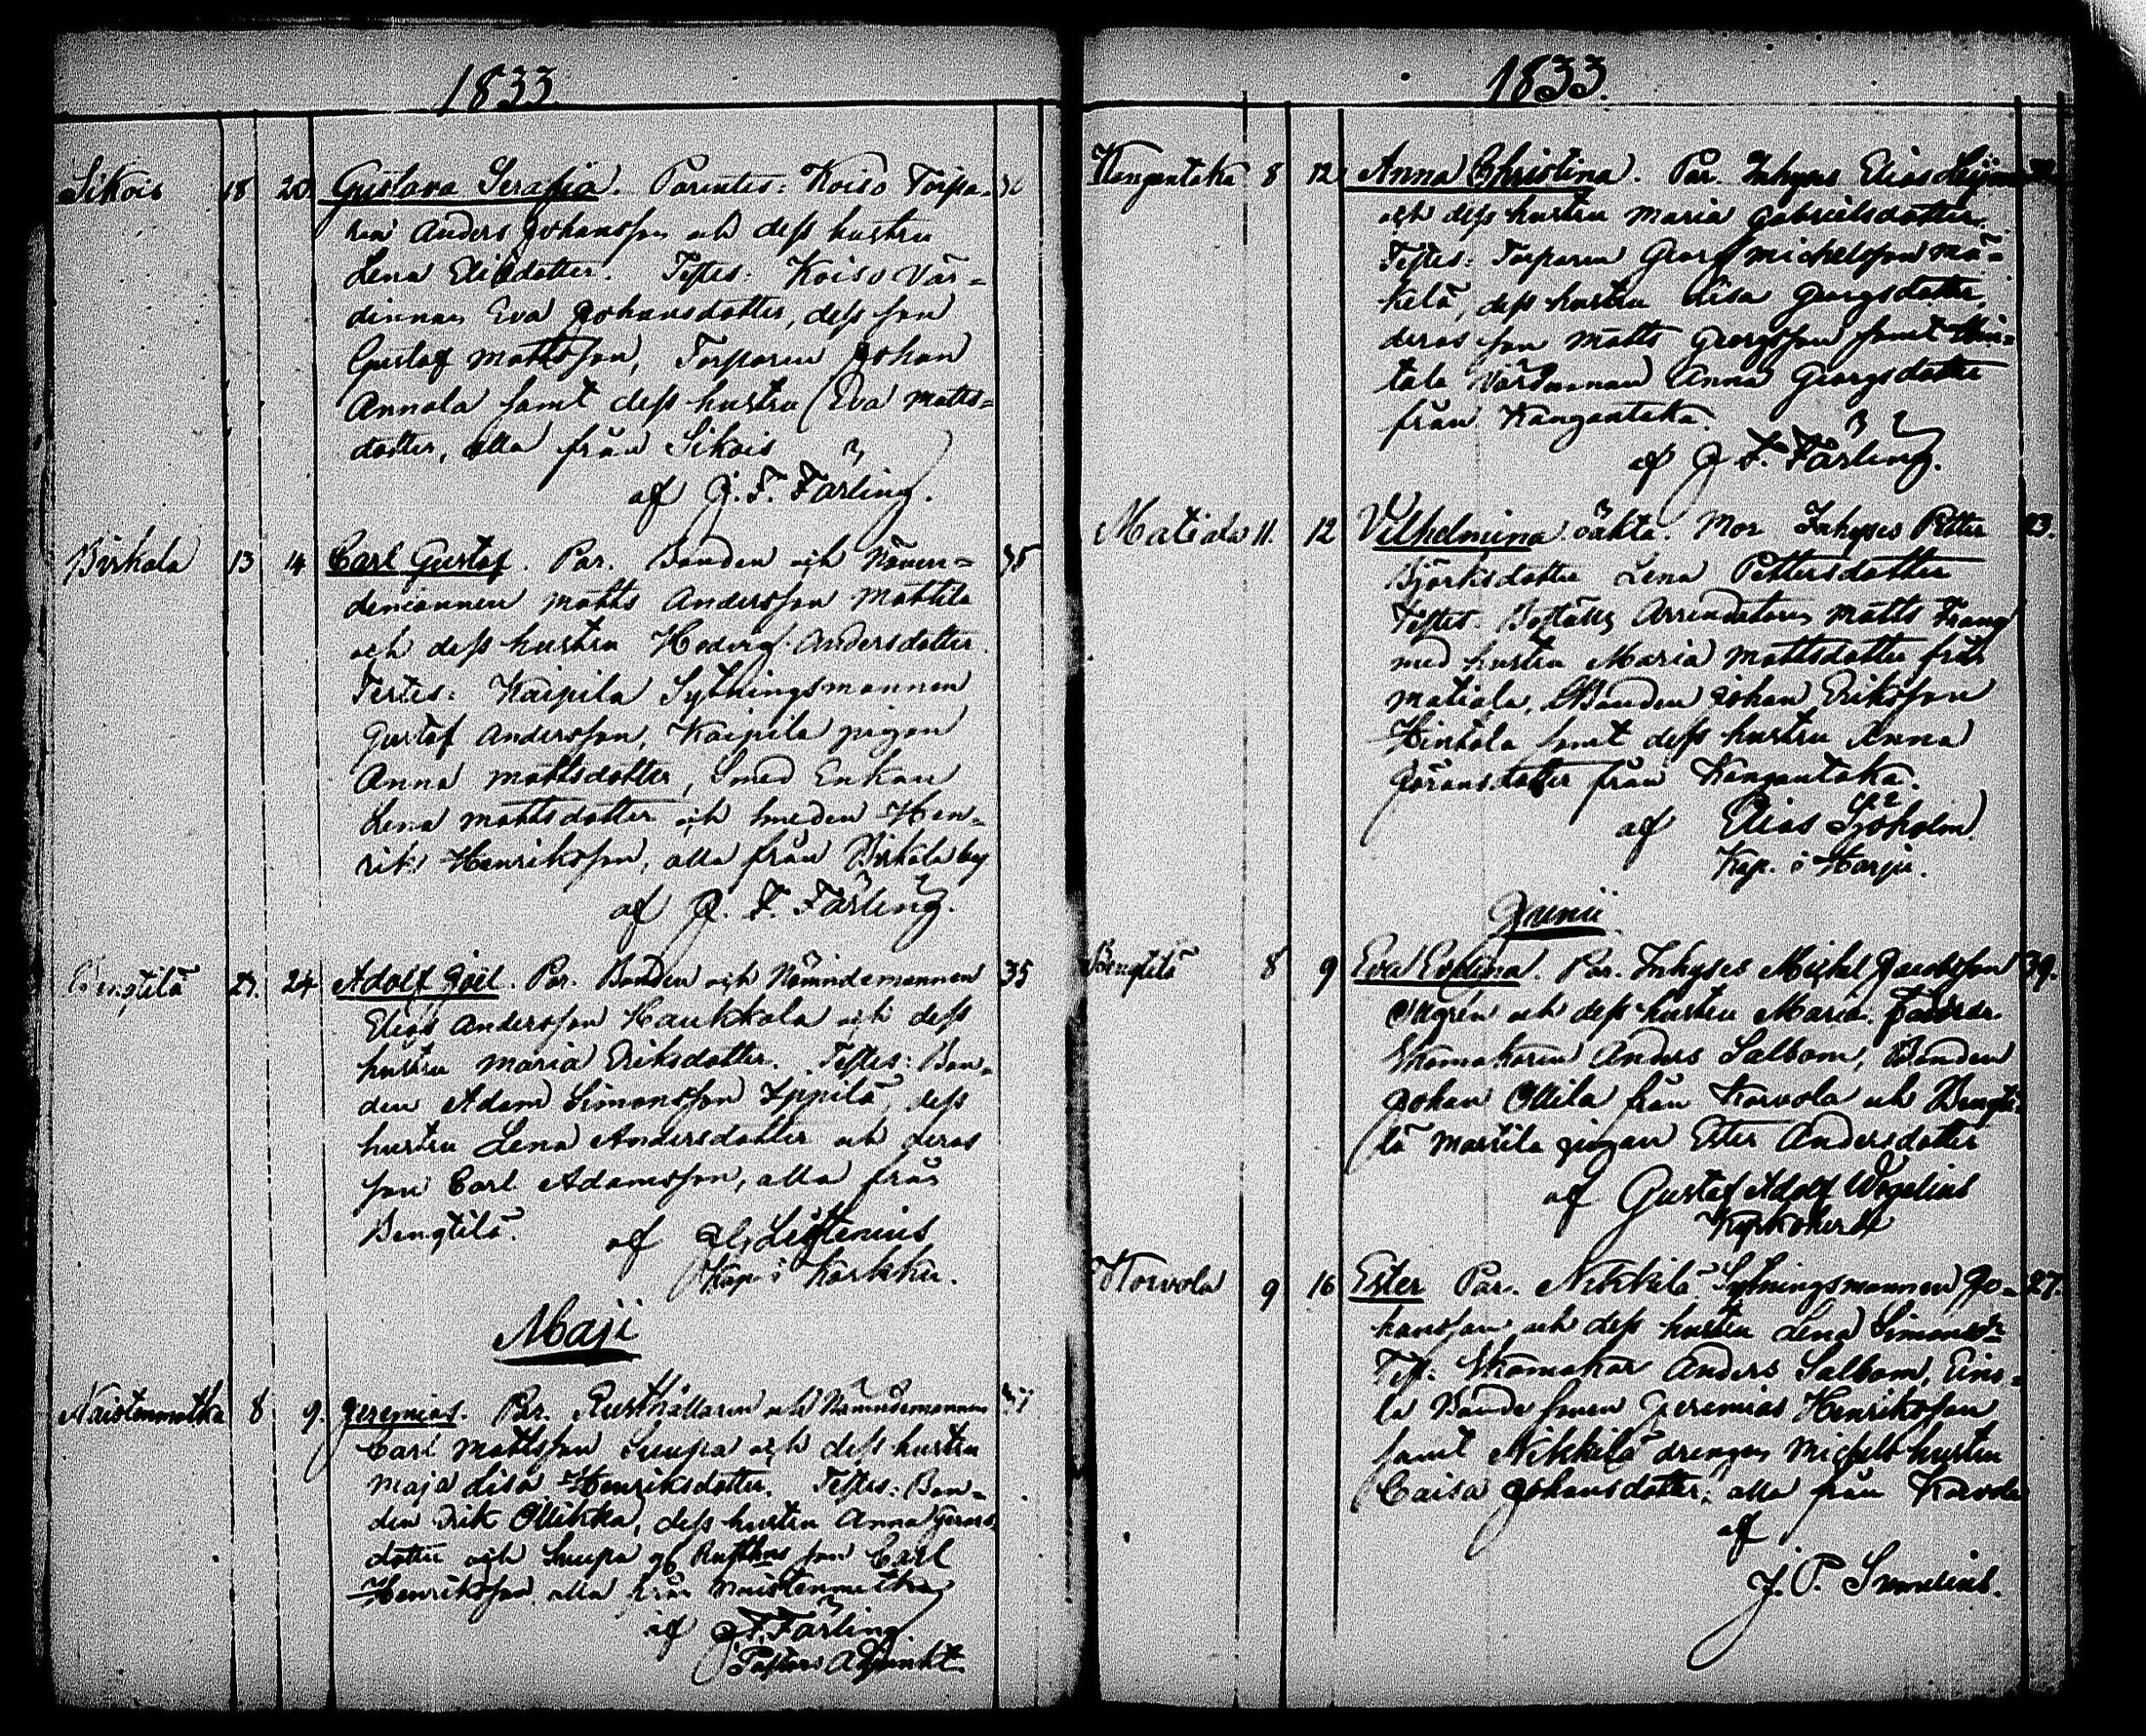 1833.
Sikois 18 20 Gustava Serafia. Parentes: Koiso Torpa-
ren Anders Johansson och dess hustru
Lena Eliædotter. Testes: Koiso Vär-
dinnan Eva Johansdotter, dess son
Gustaf Mattsson, Torparen Johan
Annala samt dess hustru Eva Matts-
dotter, alla från Sikois
af J. F. Färling.
Birkala 13 14 Carl Gustaf. Par. Bonden och Nämn- 35
demannen Matts Andersson Mattila
och dess hustru Hedvig Andersdotter.
Testes: Kaipila Sytningsmannen
Gustaf Andersson, Kaipila pigan
Anna Mattsdotter, Smed Enkan
Lena Mattsdotter och smeden Hen-
rik Henriksson, alla från Birkala by
af J. F. Färling.
Bengtilä 23. 24 Adolf Joël. Par. Bonden och Nämndemannen 35
Elias Andersson Haukkola och dess
hustru Maria Eriksdotter. Testes: Bon-
den Adam Simonsson Yppilä, dess
hustru Lena Andersdotter och deras
son Carl Adamsson, alla från
Bengtilä. af Listenius
Kap. i Karkku.
Maji
Naistenmatka 8 9. Jeremias. Par. Rusthållaren och Nämndemannen
Carl Mattsson Suupa och dess hustru
Maja Lisa Henriksdotter. Testes: Bon-
den Erik Ollikka, dess hustru Anna
dotter och Suupa son Carl
Henriksson, alla från Naistenmatka
af J. F. Färling
Pastors Adjunkt.
1833.
Kangantaka 8 12 Anna Christina. Par. Inhyses Elias
och dess hustru Maria Gabrielsdotter.
Testes: Torparen Georg Michelsson Mä-
kelä, dess hustru Lisa Georgsdotter,
deras son Matts Georgsson samt Hin-
tala Värdinnan Anna Georgsdotter
från Kangantaka.
af J. F. Färling.
Matiala 11. 12 Vilhelmina oäkta. Mor Inhyses Petter 23.
Björksdotter Lena Pettersdotter
Testes. Boställs Arrendatorn Matts Frang
med hustru Maria Mattsdotter från
Matiala, Bonden Johan Eriksson
Hintala samt dess hustru Anna
Göransdotter från Kangantaka.
af Elias Sjöholm
Kap. i Harju.
Junii
Bengtilä 8 9 Eva Evelina. Par. Inhyses Michel Jacobsson 39.
och dess hustru Maria.
Skomakaren Anders Salbom, Bonden
Johan Ollila från Korvola och Bengti-
lä Marttila pigan Ester Andersdotter
af Gustaf Adolf Wegelius
Kyrkoherde
Korvola 9 16 Ester Par. Nikkilä Sytningsmannen Jo- 27.
hansson och dess hustru Lena Simonsdr
Test: Skomakar Anders Salbom, Eino-
la Bonde sonen Jeremias Henriksson
samt Nikkilä drengen Michels hustru
Caisa Johansdotter, alla från Korvola
af
J. P. Smelius.